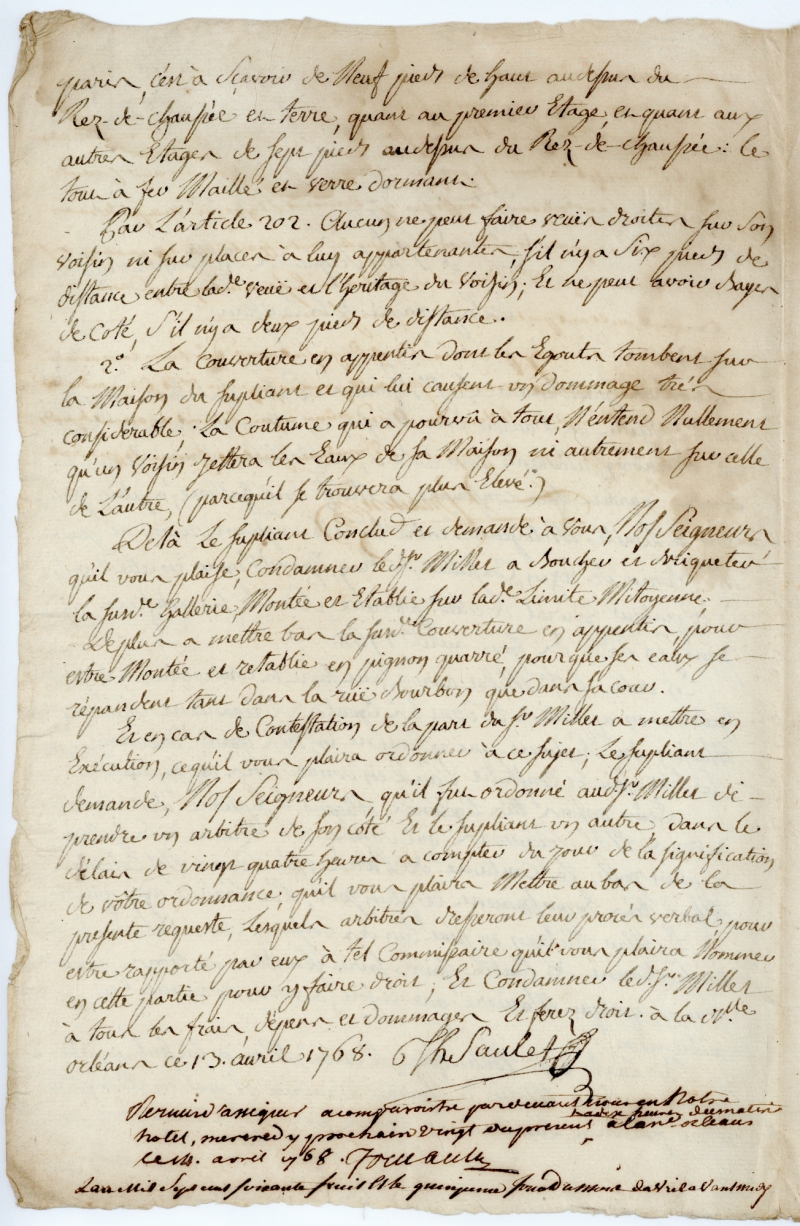 paris, c'est à Sçavoir de Neuf pieds de haut audessus du
Rez-de-chaussée et terre, quant au premier Etage, et quant aux
autres Etages de sept pieds audessus du Rez-de-chaussée: le
tout à fer Maillé et verre dormant.
Par L'article 202. Aucun ne peut faire veües droites sur son
voisin ni sur places à luy appartenantes, s'il n'y a Six pieds de
distance entre lad.e veüe et l'héritage du Voisin; Et ne peut avoir Bayes
de coté, s'il n'y a deux pieds de distance.
2.° La Couverture en appentis dont les Egouts tombent sur
la Maison du supliant et qui lui causent un dommage très
considerable. La Coutume qui a pourvû à tout, N'entend Nullement
qu'un Voisin jettera les Eaux de sa Maison ni autrement sur celle
de L'autre, (parcequ'il se trouvera plus Elevé.)
De là Le supliant Conclud et demande à vous, Nosseigneurs
qu'il vous plaise, Condamner led. Sr. Millet a Boucher et Briqueter
la susd.e Gallerie, Montée et Etablie sur lad.e Limite Mitoyenne.
Deplus a mettre bas la susd.e Couverture en appentis, pour
estre Montée et retablie en pignon quarré, pour que ses eaux se
répandent tant dans la rüe Bourbon que dans sa cour.
Et en cas de Contestation de la part du Sr. Millet a mettre en
Exécution, ce qu'il vous plaira ordonner à ce sujet; Le supliant
demande, Nosseigneurs qu'il fut ordonné aud. Sr. Millet de
prendre un arbitre de son côté Et le supliant un autre, dans le
délais de vingt quatre heures a compter du jour de la signification
de vôtre ordonnance, qu'il vous plaira Mettre au bas de la
présente requeste, Lesquels arbitres dresseront leur procès verbal, pour
estre rapporté par eux à tel Commissaire qu'il vous plaira Nommer
en cette partie pour y faire droit; Et Condamner led. Sr. Millet
à tous les frais, dépens et dommages Et ferez droit. à la Nlle
orléans ce 13. avril 1768. Saulet
Permis d'assigner a comparoistre pardevant nous en Notre
hotel, mercredy prochain vingt du present, a dix heures du matin a la Nlle orleans
le 14. avril 1768. Foucault
L'an Mil Sept cent soixante huit Et le quinzieme jour du mois d'avril avant midy